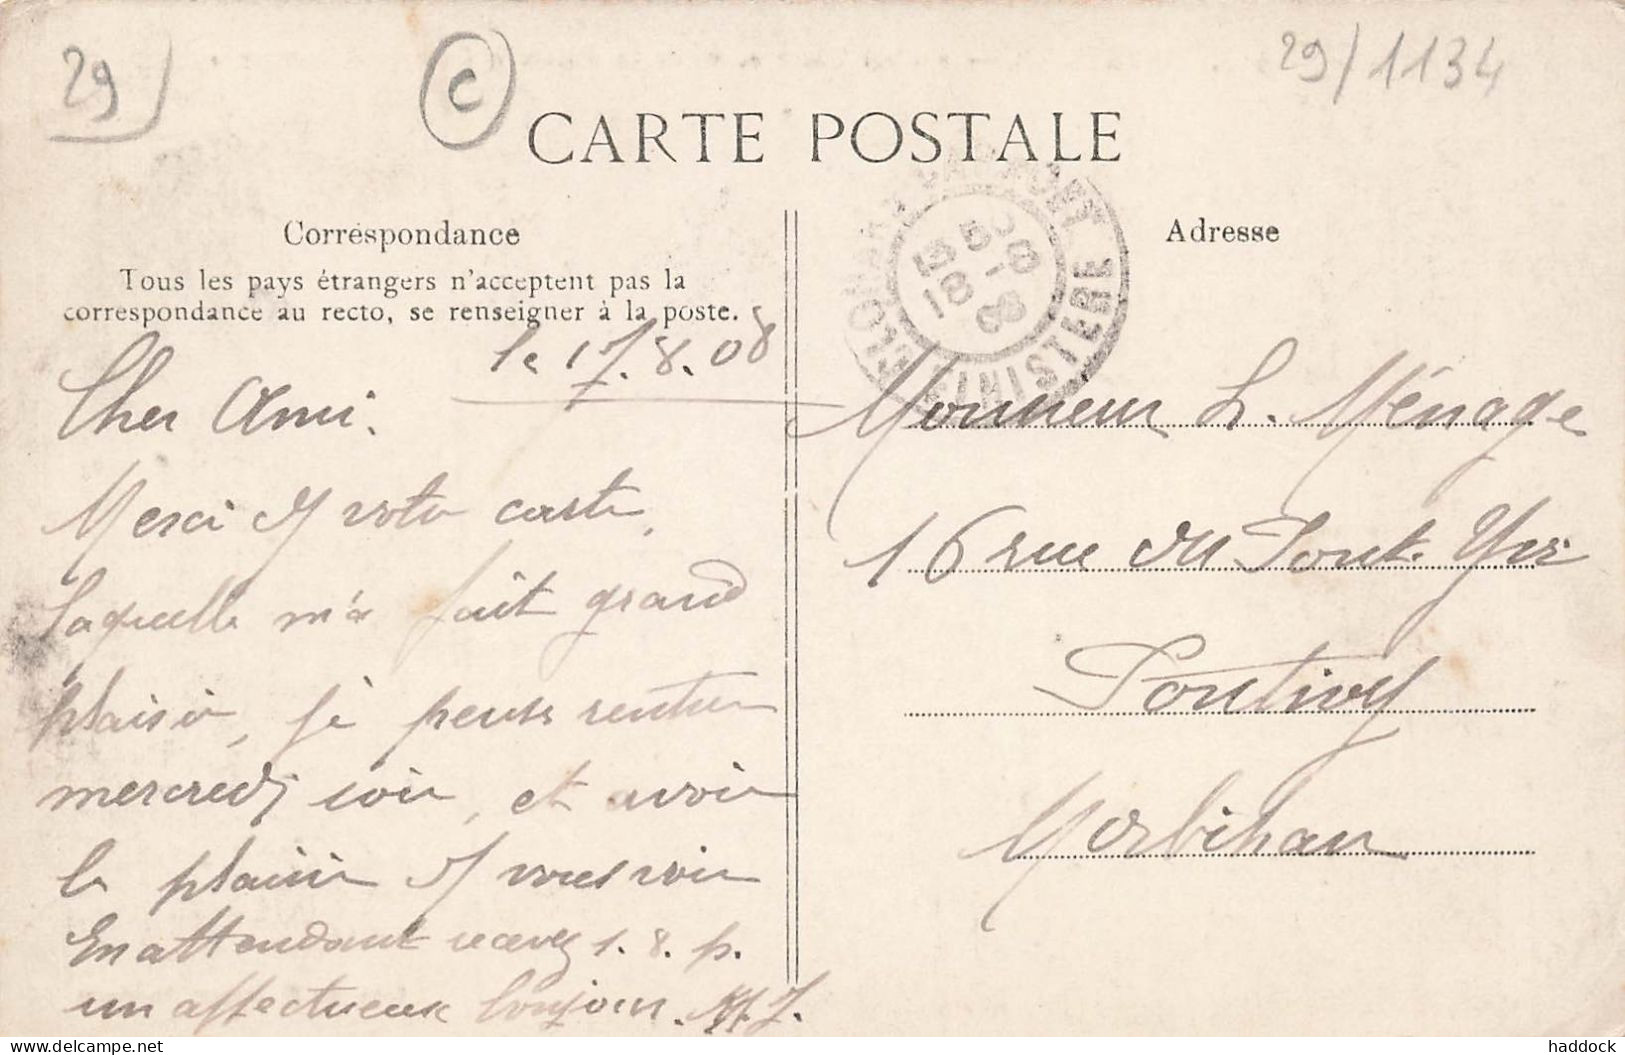 29
C
29/1134
CARTE POSTALE
Correspondance
Tous les pays étrangers n'acceptent pas la
correspondance au recto, se renseigner à la poste.
le 17.8.08
Cher Ami.
Merci de votre carte,
laquelle m'a fait grand
plaisir, je pense rentrer
mercredi soir, et avoir
le plaisir de vous voir
En attendant recevez
un affectueux bonjour.
Adresse
5 *
18 -8
08
FINISTERE
Monsieur L. Ménage
16 rue du Pont
Pontivy
Morbihan
delcampe.net
haddock